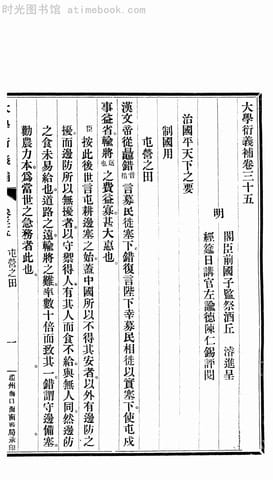 时光图书馆 - atimebook.com
大學衍義補卷三十五
明 閣臣前國子監祭酒丘 濬進呈
經筵日講官左諭德陳仁錫評閱
治國平天下之要
制國用
屯營之田
漢文帝從鼂錯言募民徙塞下錯復言陛下幸募民相徙以實塞下使屯戍
事益省輸將之費益寡甚大惠也
臣按此後世言屯耕邊塞之始蓋中國所以不得其安者以外有邊防之
擾而邊防所以無擾者以守禦得人有其人而食不給與無人同然邊防
之食未易給也道路之遠輸將之難率數十倍而致其一錯謂守邊備塞
勸農力本為當世之急務者此也
大學衍義補 卷三五 屯營之田 一